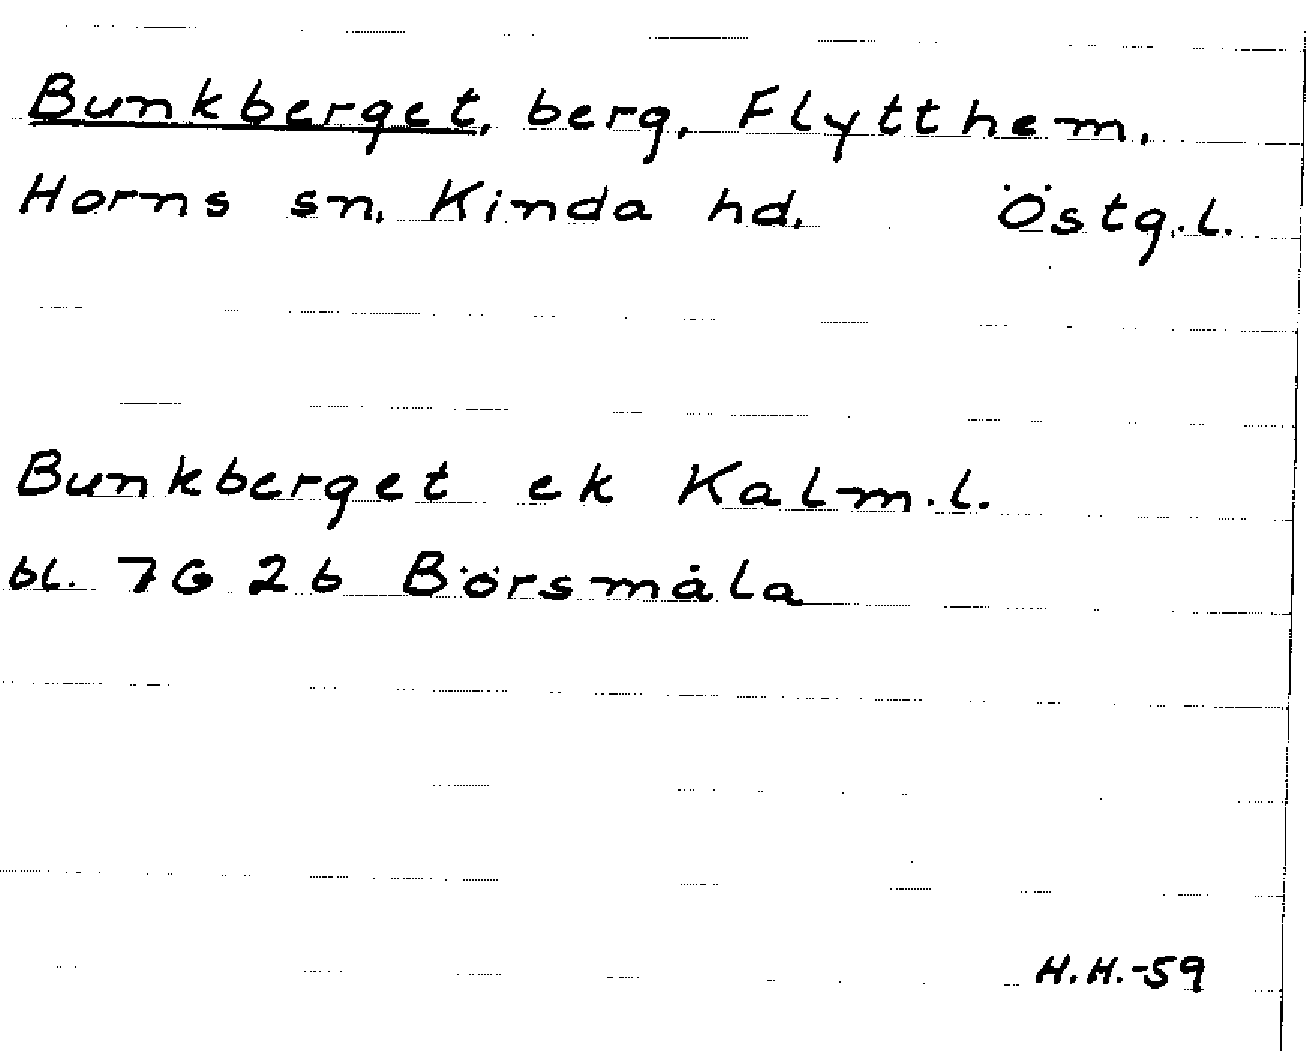 Bunkberget, berg, Flytthem,
Horns sn. Kinda hd. Östg.l.
Bunkberget ek Kalm.l.
bl. 7G 2b Börsmåla
H.H.-59